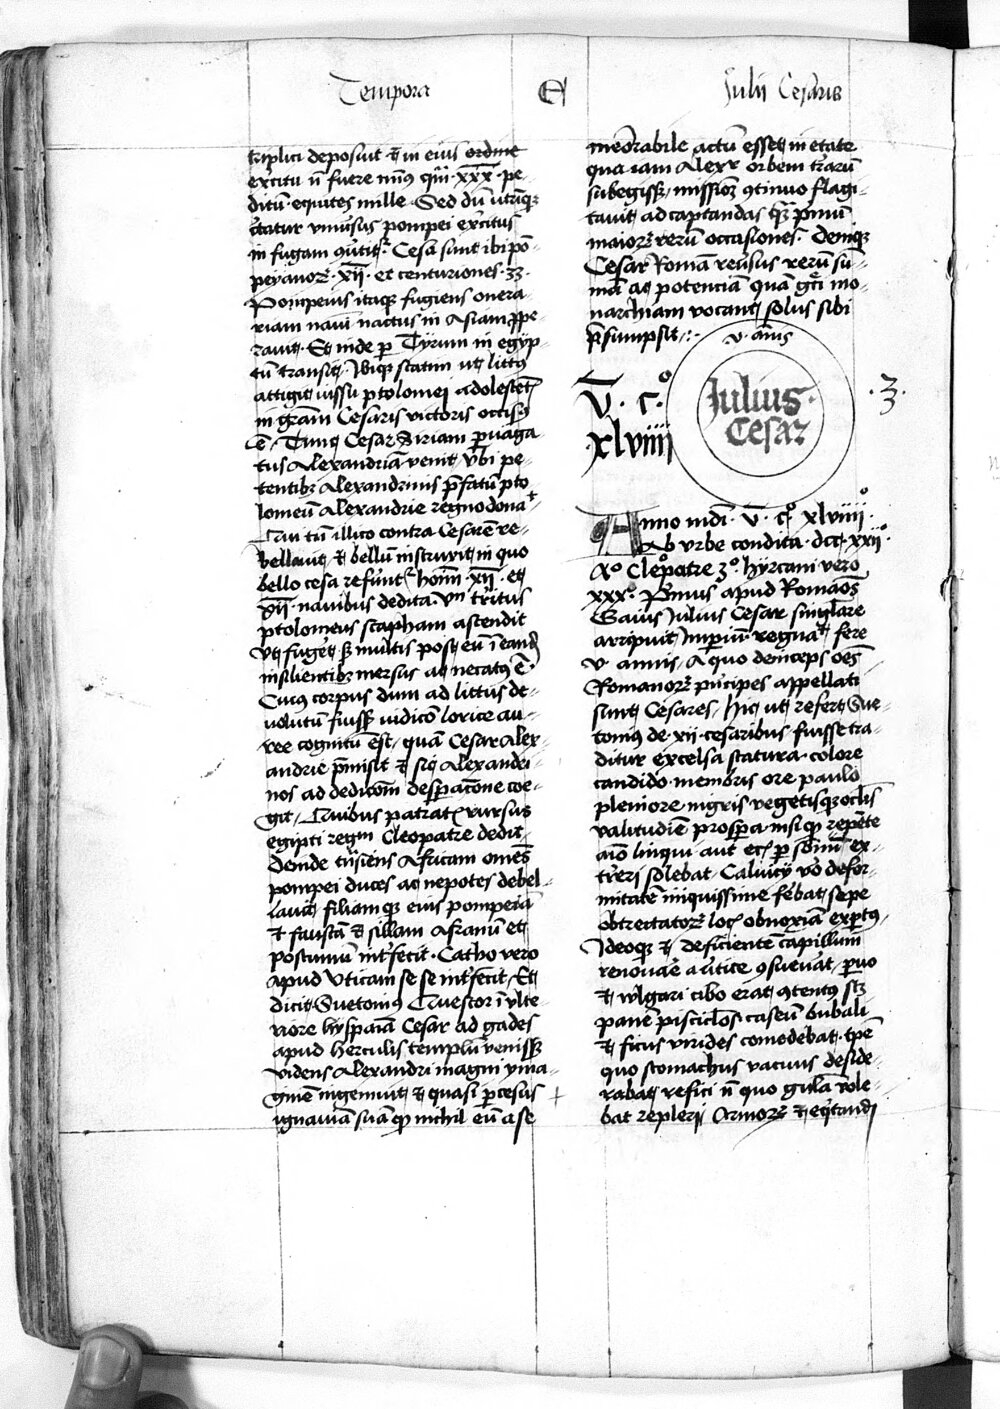 Tempora
Et
Julii Cesaris
triplici deposuit et in eius ordine
excitu n fuere min9 · xxx · pe-
ditu equites mille · Sed du utrumq
vniusus pompei excitus
in fugam · Cesa sunt ibi po-
peyanor · xii · et centuriones · 33 ·
Pompeius itaq fugiens onera-
riam navi nactus in Asiam ppe-
ravit · Et inde p Tyrum in egyp-
tu transit · Ibiq statim ut litt9
attigit iussu ptolomei adolescet
in gram Cesaris victoris occisus
e · Tunc Cesar Siriam pvaga
tus Alexandria venit · Ubi pe-
tentib3 Alexandrinis pfatu pto
lomeu Alexandrie regno dona
Qui tu illico contra Cesare re-
bellavit et bellu instruxit in quo
bello cesa refunt · xx · et
xii · navibus dedita · Un tritus
ptolomeus scapham ascendit
Ut fuget s3 multis post eu i eand
insilientib3 mersus ac necat9 e ·
Cuius corpus dum ad littus de-
volutu fuiss iudico lorice au-
ree cognitu est · qua Cesar Alex-
andrie pmisit et sic Alexandri-
nos ad dedicom despacone coe-
git · Quibus patratis rursus
egipti regm Cleopatre dedit
Deinde tnsiens Africam omes
pompei duces ac nepotes debel-
lavit filiamq eius pompeia
et fausta et sillam Afranu et
postumiu intfecit · Catho vero
apud Uticam se se intfecit · Et
dicit Suetoni9 Questor i ulte-
riore hyspaia Cesar ad gades
apud herculis templu veniss
videns Alexandri magni yma-
gine ingemuit et quasi ptesus
ignavia sua q nichil eu a se
meorabile actu esset in etate
qua iam Alexr orbem traru
subegiss · missioz 9tinuo flagi-
tavit ad captandas pmu
maior reru occasiones · Demq
Cesar Roma revsus reru su-
ma ac potencia qua gci mo-
narchiam vocant solus sibi
psumpsit
v · anis
Julius
Cesar
· 3 ·
3
V · c°
xlviiii
Anno mdi · V · c° xlviiii°
Ab urbe condita · dcc · xxii°
A° Cleopatre 3° · hyrcani vero
xxx° · Primus apud Romaos
Gaius Julius Cesar singlare
arripuit Imperiu · regnat fere
v · annis · A quo deinceps oes
Romanor pncipes appellati
sunt Cesares · hic ut refert Sue-
toni9 de · xii · cesaribus fuisse tra-
ditur excelsa statura · colore
candido · membris ore paulo
pleniore nigris vegetisq oclis
valitudie prospa · nisi q repete
aio linqui aut ecz p somu ex-
treri solebat · Calvicij vo defor-
mitate iniquissime febat sepe
obtrectator locz obnoxia expt9
Ideoq et deficiente capillum
renovae a vtice 9suevat · pvo
et vulgari cibo erat 9tent9 scz
pane pisciclos · caseu bubali
et ficus virides comedebat · tpe
quo stomachus vacuus deside-
rabat refici n quo gula vole-
bat repleri Armor et eqtandi